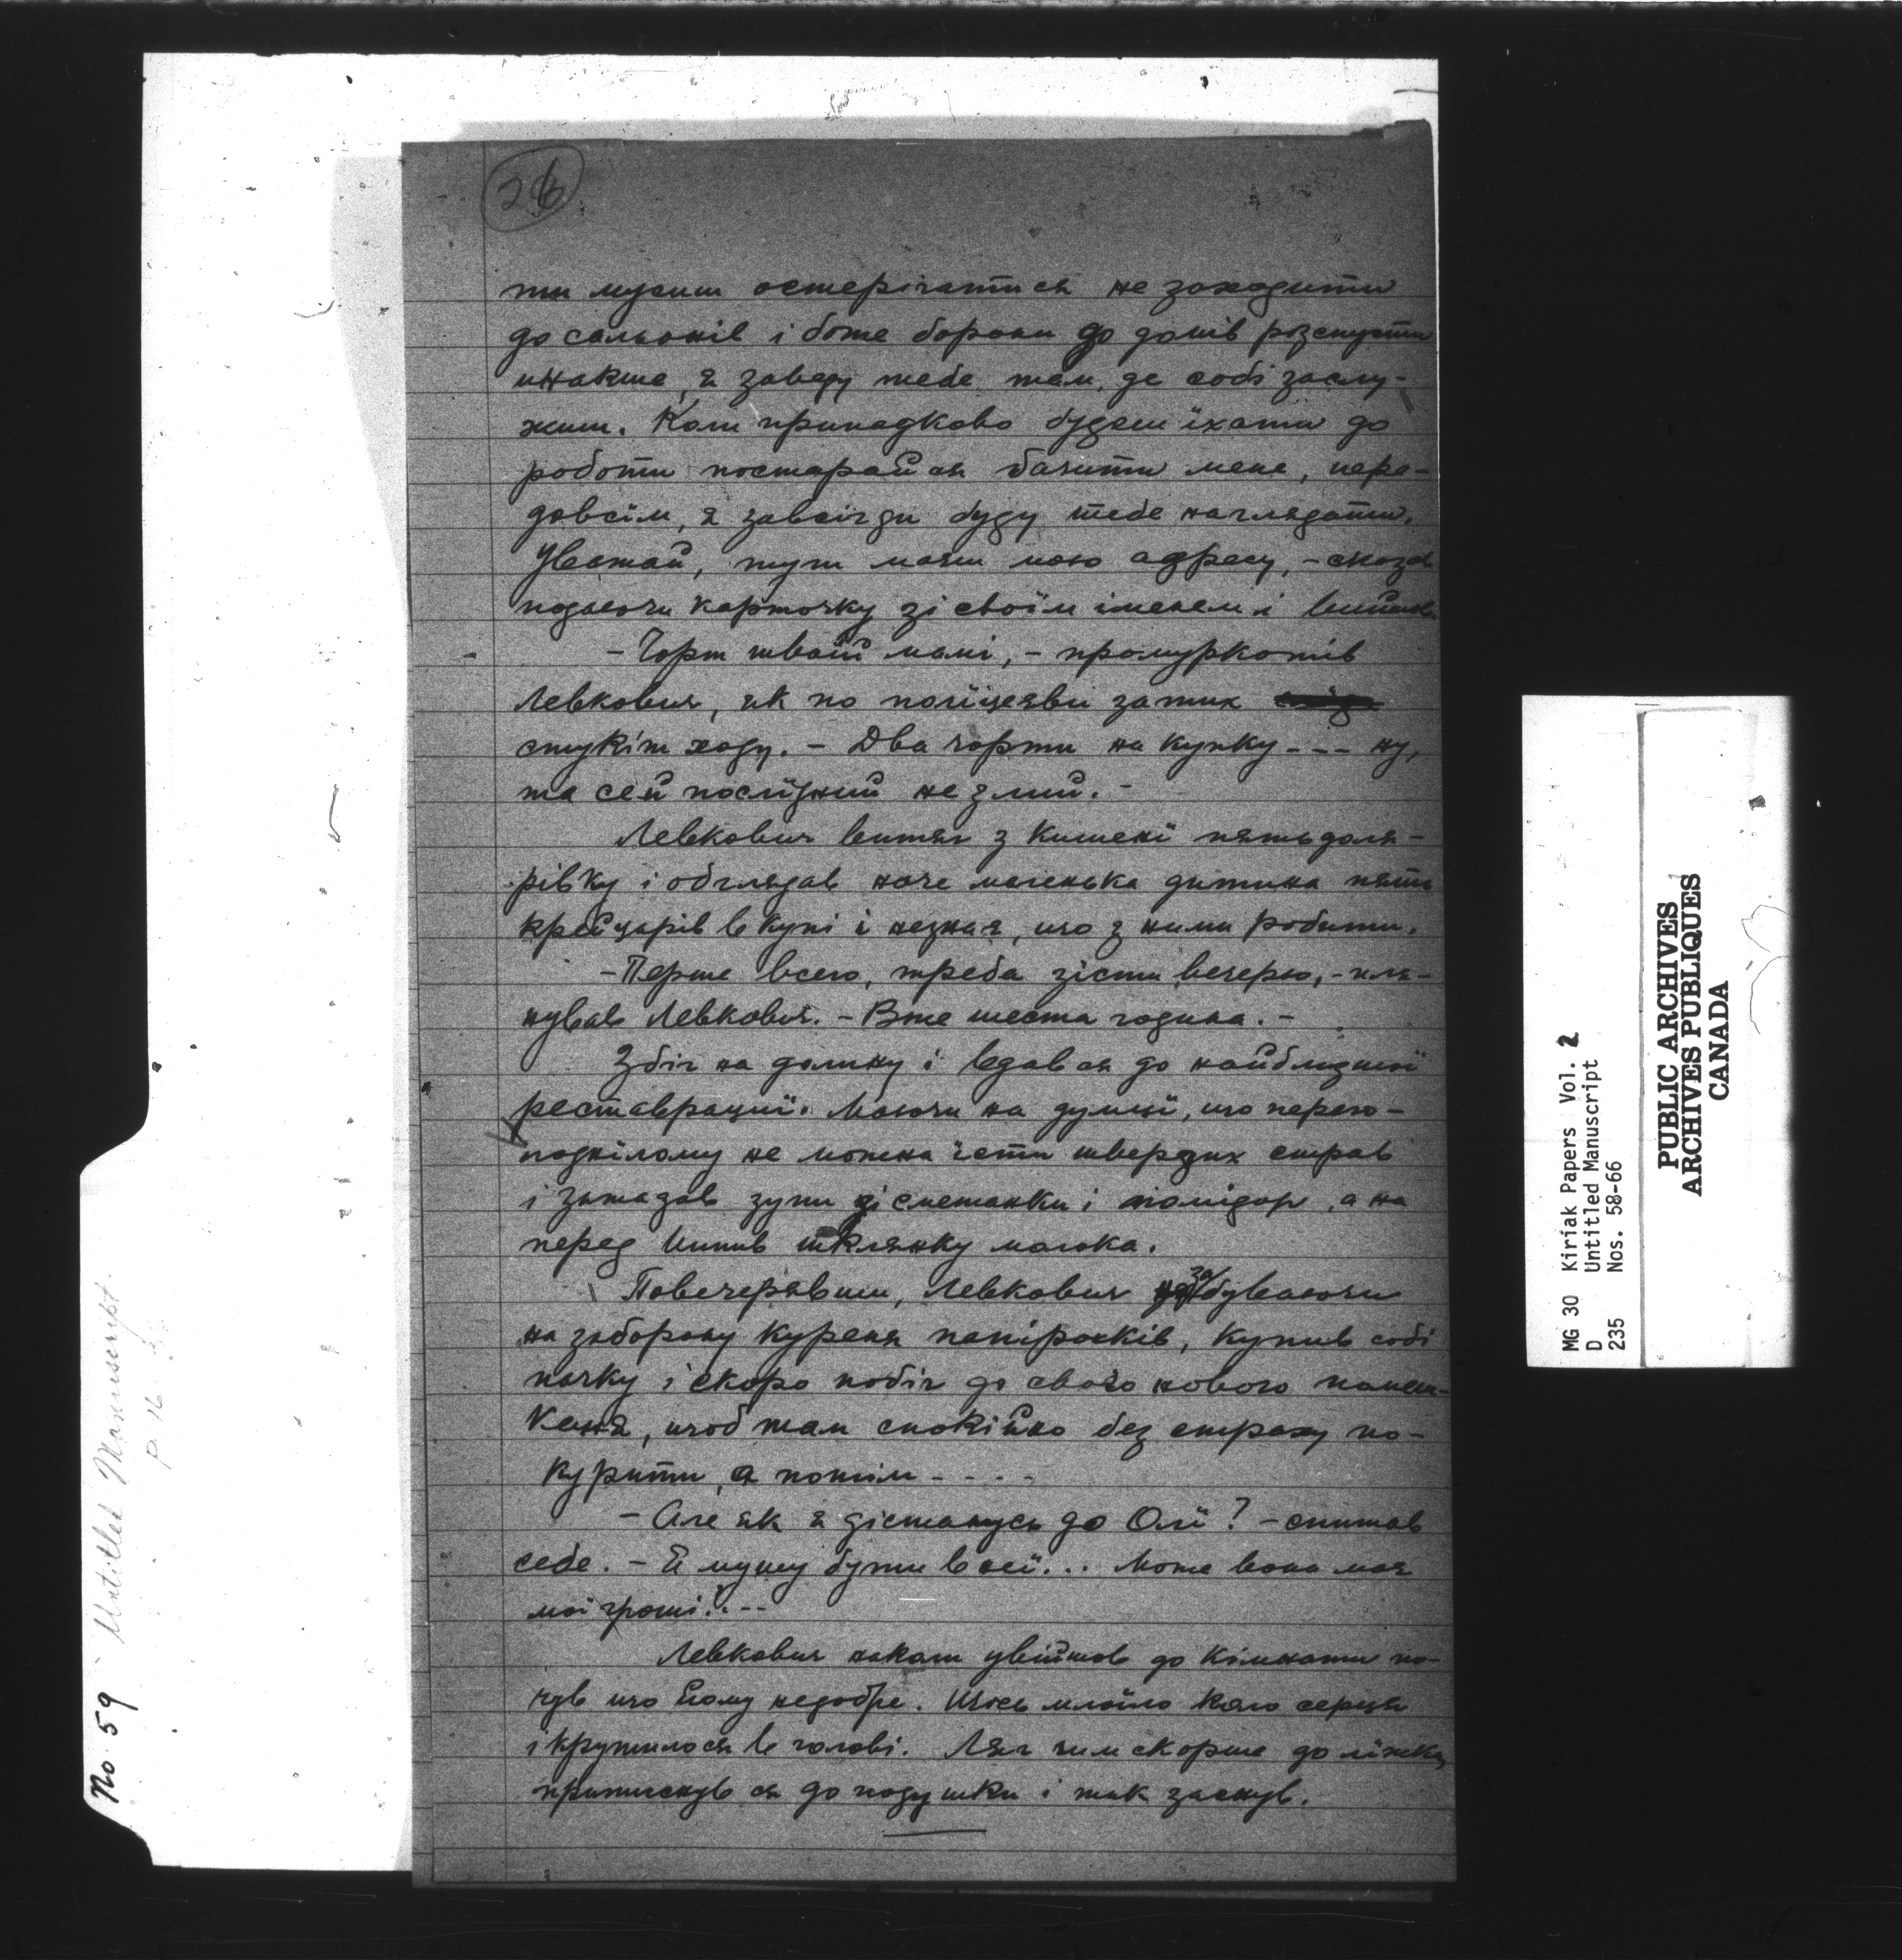 26
ти мусиш остерігатися не заходити
до сальонів і боже борони до домів розпусти
инакше, я заведу тебе там, де собі заслу-
жиш. Коли припадково будеш їхати до
роботи постарай ся бачити мене, пере-
довсім, я завсігди буду тебе наглядати.
Уважай, тут маєш мою адресу, - сказав
подаючи карточку зі своїм іменем і вийшов.
- Чорт твоїй мамі, - промуркотів
Левкович, як по поліцеяви затих
стукіт ходу. - Два чорти на купку --- ну,
та сей послїдний не злий. -
Левкович витяг з кишені пятьдоля-
рівку і обглядав наче маленька дитина пять
крейцарів в купі і незная, що з ними робити.
- Перше всего, треба зісти вечерю, - пля-
нував Левкович. - Вже шеста година. -
Збіг на долину і вдав ся до найблизшої
реставрації. Маючи на думцї, що перего-
лоднілому не можна їсти твердих страв
і зажадав зупи зі сметанки і помідор, а на
перед випив шклянку молока.
Повечерявши, Левкович забуваючи
на заборону куреня папіросків, купив собі
пачку і скоро побіг до свого нового помеш-
каня, щоб там спокійно без страху по-
курити, а потім - - - -
- Але як я дістанусь до Олї? - спитав
себе. - Я мушу бути в неї... Може вона має
мої гроші...--
Левкович накали увійшов до кімнати по-
чув що йому недобре. Щось млоїло коло серця
і крутилося в голові. Ляг чим скорше до ліжка,
притиснув ся до подушки і так заснув.
No. 59 - Untitled Manuscript.
P. 16
MG 30 Kiriak Papers Vol. 2
D Untitled Manuscript
235 Nos. 58-66
PUBLIC ARCHIVES
ARCHIVES PUBLIQUES
CANADA